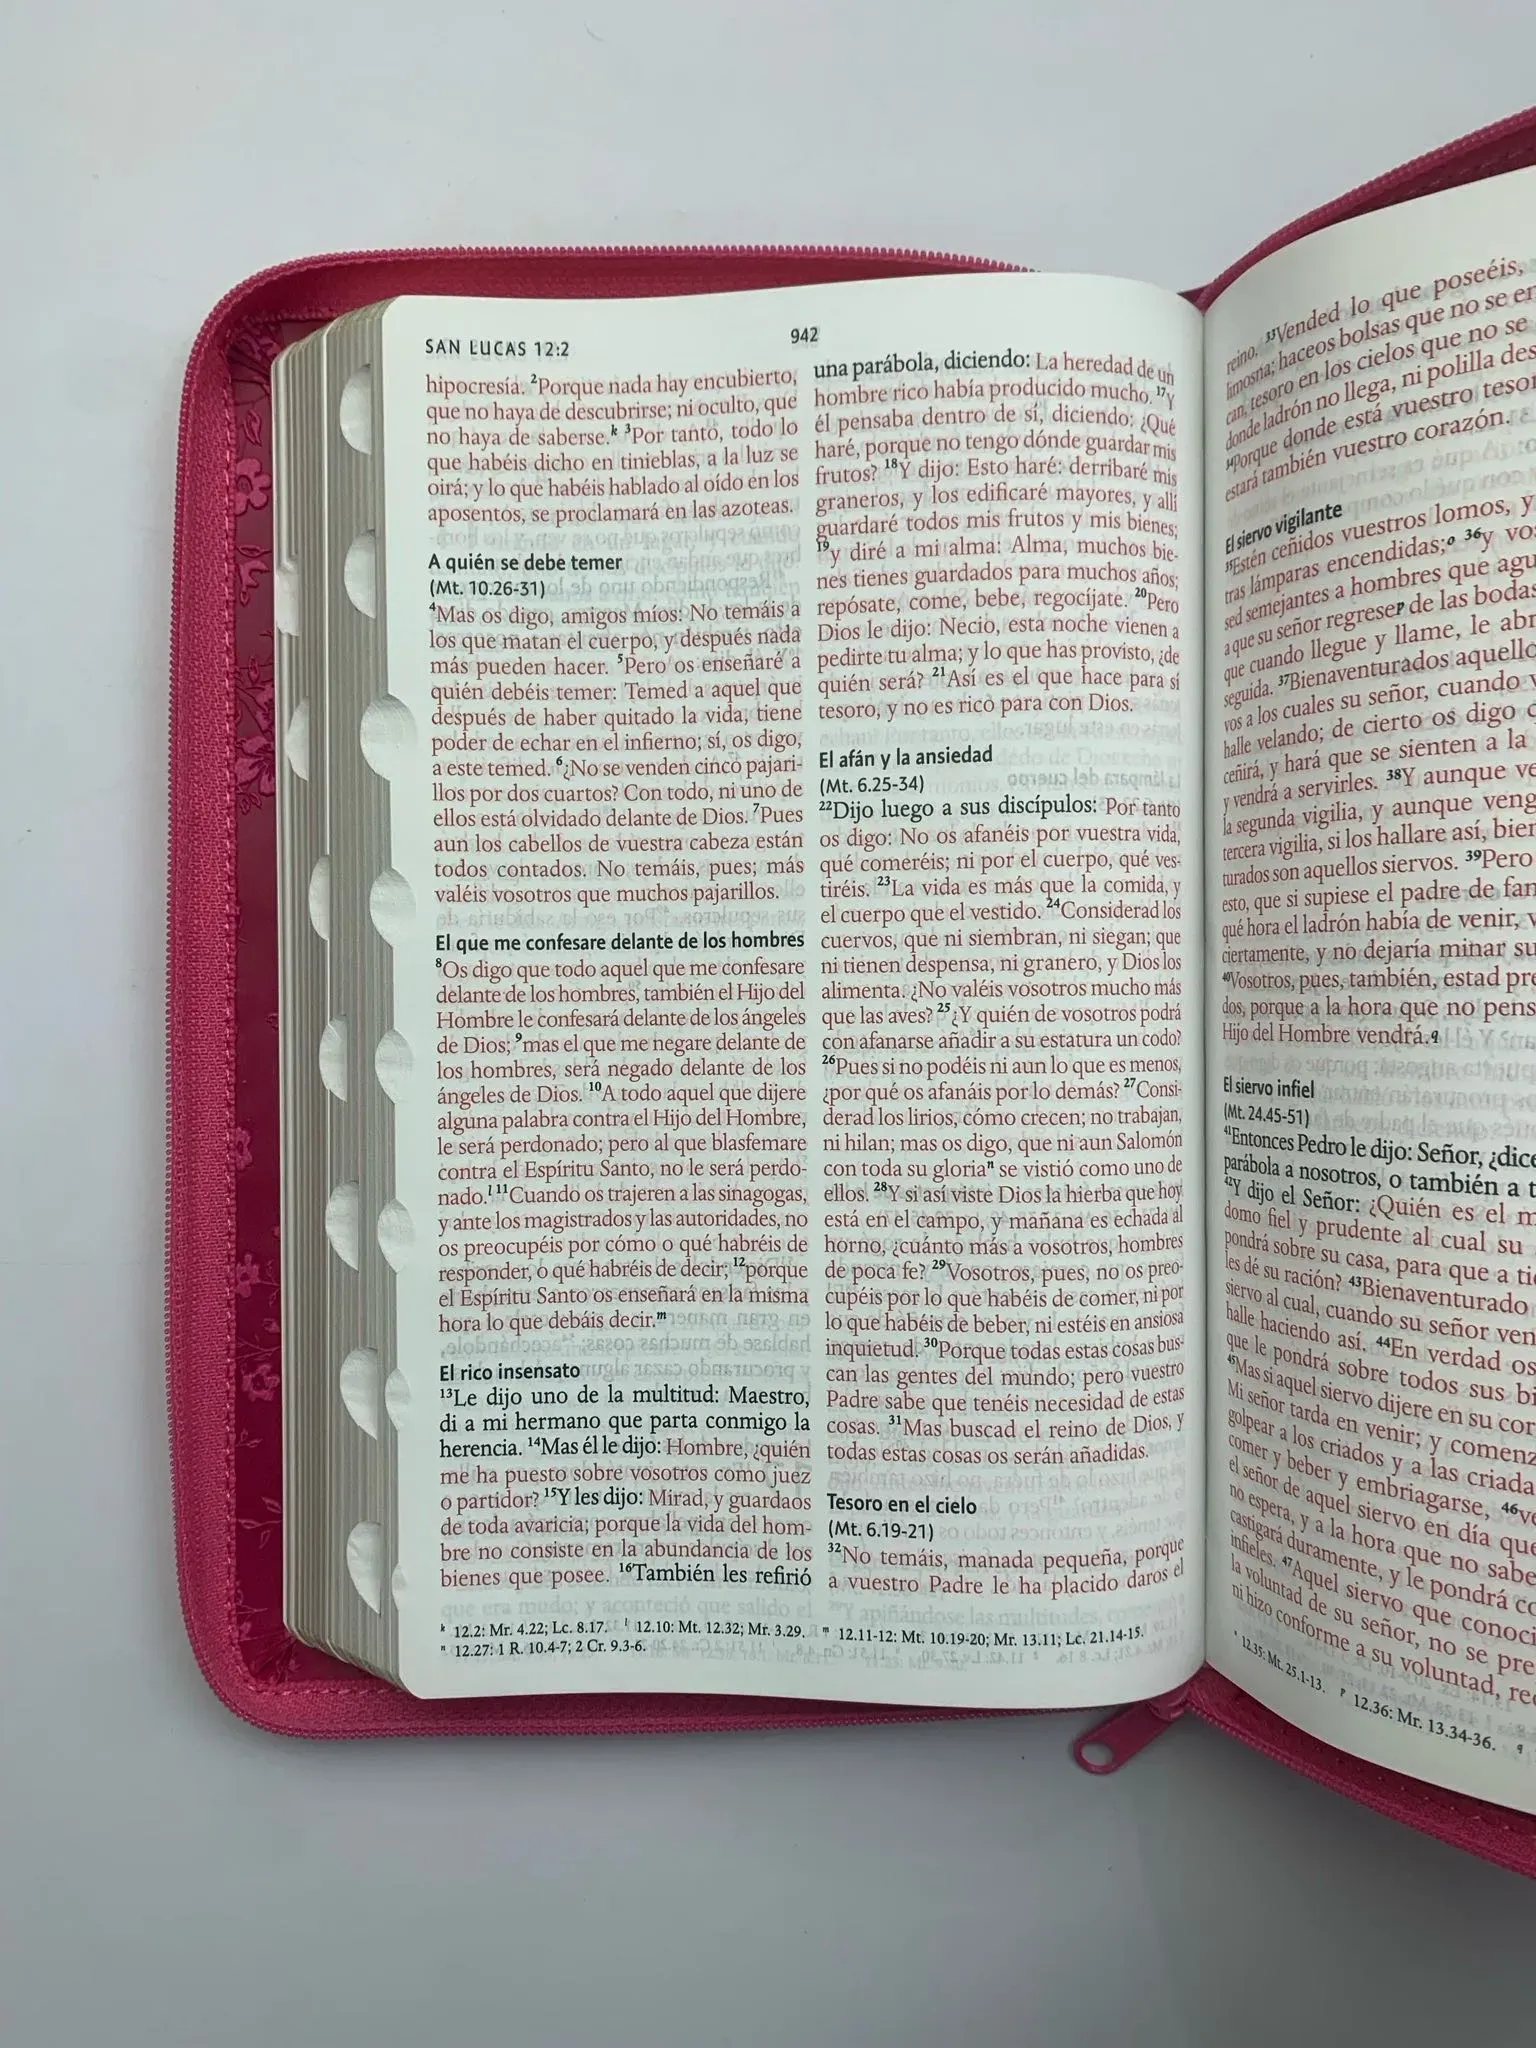 SAN LUCAS 12:2
942
hipocresía. ²Porque nada hay encubierto,
que no haya de descubrirse; ni oculto, que
no haya de saberse.ᵏ ³Por tanto, todo lo
que habéis dicho en tinieblas, a la luz se
oirá; y lo que habéis hablado al oído en los
aposentos, se proclamará en las azoteas.
A quién se debe temer
(Mt. 10.26-31)
⁴Mas os digo, amigos míos: No temáis a
los que matan el cuerpo, y después nada
más pueden hacer. ⁵Pero os enseñaré a
quién debéis temer: Temed a aquel que
después de haber quitado la vida, tiene
poder de echar en el infierno; sí, os digo,
a este temed. ⁶¿No se venden cinco pajari-
llos por dos cuartos? Con todo, ni uno de
ellos está olvidado delante de Dios. ⁷Pues
aun los cabellos de vuestra cabeza están
todos contados. No temáis, pues; más
valéis vosotros que muchos pajarillos.
El que me confesare delante de los hombres
⁸Os digo que todo aquel que me confesare
delante de los hombres, también el Hijo del
Hombre le confesará delante de los ángeles
de Dios; ⁹mas el que me negare delante de
los hombres, será negado delante de los
ángeles de Dios. ¹⁰A todo aquel que dijere
alguna palabra contra el Hijo del Hombre,
le será perdonado; pero al que blasfemare
contra el Espíritu Santo, no le será perdo-
nado.ˡ ¹¹Cuando os trajeren a las sinagogas,
y ante los magistrados y las autoridades, no
os preocupéis por cómo o qué habréis de
responder, o qué habréis de decir; ¹²porque
el Espíritu Santo os enseñará en la misma
hora lo que debáis decir.ᵐ
El rico insensato
¹³Le dijo uno de la multitud: Maestro,
di a mi hermano que parta conmigo la
herencia. ¹⁴Mas él le dijo: Hombre, ¿quién
me ha puesto sobre vosotros como juez
o partidor? ¹⁵Y les dijo: Mirad, y guardaos
de toda avaricia; porque la vida del hom-
bre no consiste en la abundancia de los
bienes que posee. ¹⁶También les refirió
una parábola, diciendo: La heredad de un
hombre rico había producido mucho. ¹⁷Y
él pensaba dentro de sí, diciendo: ¿Qué
haré, porque no tengo dónde guardar mis
frutos? ¹⁸Y dijo: Esto haré: derribaré mis
graneros, y los edificaré mayores, y allí
guardaré todos mis frutos y mis bienes;
¹⁹y diré a mi alma: Alma, muchos bie-
nes tienes guardados para muchos años;
repósate, come, bebe, regocíjate. ²⁰Pero
Dios le dijo: Necio, esta noche vienen a
pedirte tu alma; y lo que has provisto, ¿de
quién será? ²¹Así es el que hace para sí
tesoro, y no es rico para con Dios.
El afán y la ansiedad
(Mt. 6.25-34)
²²Dijo luego a sus discípulos: Por tanto
os digo: No os afanéis por vuestra vida,
qué comeréis; ni por el cuerpo, qué ves-
tiréis. ²³La vida es más que la comida, y
el cuerpo que el vestido. ²⁴Considerad los
cuervos, que ni siembran, ni siegan; que
ni tienen despensa, ni granero, y Dios los
alimenta. ¿No valéis vosotros mucho más
que las aves? ²⁵¿Y quién de vosotros podrá
con afanarse añadir a su estatura un codo?
²⁶Pues si no podéis ni aun lo que es menos,
¿por qué os afanáis por lo demás? ²⁷Consi-
derad los lirios, cómo crecen; no trabajan,
ni hilan; mas os digo, que ni aun Salomón
con toda su gloriaⁿ se vistió como uno de
ellos. ²⁸Y si así viste Dios la hierba que hoy
está en el campo, y mañana es echada al
horno, ¿cuánto más a vosotros, hombres
de poca fe? ²⁹Vosotros, pues, no os preo-
cupéis por lo que habéis de comer, ni por
lo que habéis de beber, ni estéis en ansiosa
inquietud. ³⁰Porque todas estas cosas bus-
can las gentes del mundo; pero vuestro
Padre sabe que tenéis necesidad de estas
cosas. ³¹Mas buscad el reino de Dios, y
todas estas cosas os serán añadidas.
Tesoro en el cielo
(Mt. 6.19-21)
³²No temáis, manada pequeña, porque
a vuestro Padre le ha placido daros el
ᵏ 12.2: Mr. 4.22; Lc. 8.17. ˡ 12.10: Mt. 12.32; Mr. 3.29. ᵐ 12.11-12: Mt. 10.19-20; Mr. 13.11; Lc. 21.14-15.
ⁿ 12.27: 1 R. 10.4-7; 2 Cr. 9.3-6.
reino. ³³Vended lo que poseéis,
limosna; haceos bolsas que no se en
can, tesoro en los cielos que no se
donde ladrón no llega, ni polilla des
³⁴Porque donde está vuestro tesor
estará también vuestro corazón.
El siervo vigilante
³⁵Estén ceñidos vuestros lomos, y
tras lámparas encendidas;ᵒ ³⁶y vo
sed semejantes a hombres que agu
a que su señor regreseᵖ de las bodas
que cuando llegue y llame, le abr
seguida. ³⁷Bienaventurados aquello
vos a los cuales su señor, cuando v
halle velando; de cierto os digo q
ceñirá, y hará que se sienten a la
y vendrá a servirles. ³⁸Y aunque ve
la segunda vigilia, y aunque veng
tercera vigilia, si los hallare así, bien
turados son aquellos siervos. ³⁹Pero
esto, que si supiese el padre de fam
qué hora el ladrón había de venir, v
ciertamente, y no dejaría minar su
⁴⁰Vosotros, pues, también, estad pre
dos, porque a la hora que no pens
Hijo del Hombre vendrá.q
El siervo infiel
(Mt. 24.45-51)
⁴¹Entonces Pedro le dijo: Señor, ¿dice
parábola a nosotros, o también a t
⁴²Y dijo el Señor: ¿Quién es el m
domo fiel y prudente al cual su
pondrá sobre su casa, para que a ti
les dé su ración? ⁴³Bienaventurado
siervo al cual, cuando su señor ven
halle haciendo así. ⁴⁴En verdad os
que le pondrá sobre todos sus bi
⁴⁵Mas si aquel siervo dijere en su cor
Mi señor tarda en venir; y comenz
golpear a los criados y a las criada
comer y beber y embriagarse, ⁴⁶ve
el señor de aquel siervo en día que
no espera, y a la hora que no sabe
castigará duramente, y le pondrá co
infieles. ⁴⁷Aquel siervo que conoci
la voluntad de su señor, no se pre
ni hizo conforme a su voluntad, rec
ᵒ 12.35: Mt. 25.1-13. ᵖ 12.36: Mr. 13.34-36. q